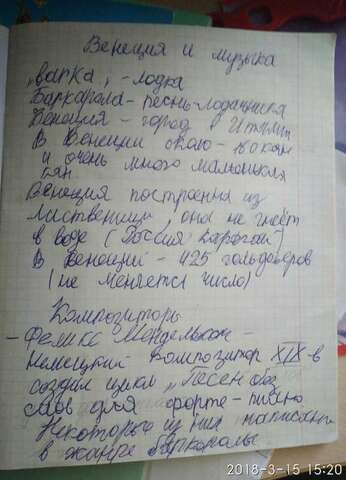 Венеция и музыка
„варка„ - лодка
Баркарола - песнь лодочника
Венеция - город в Итали
В Венеции около -
и очень много маленьких
кан.
Венеция построенна из
лиственицы, она не гнёт
в воде (Россия
В Венеции - 425 гольдольеров
(не меняется число)
Композиторы
- Феликс Мендельсон -
немецкий композитор XIX-в
создал цикл „Песен без
слов для форте-пиано
Некоторые из них написаны
в жанре баркаролы
2018-3-15 15:20